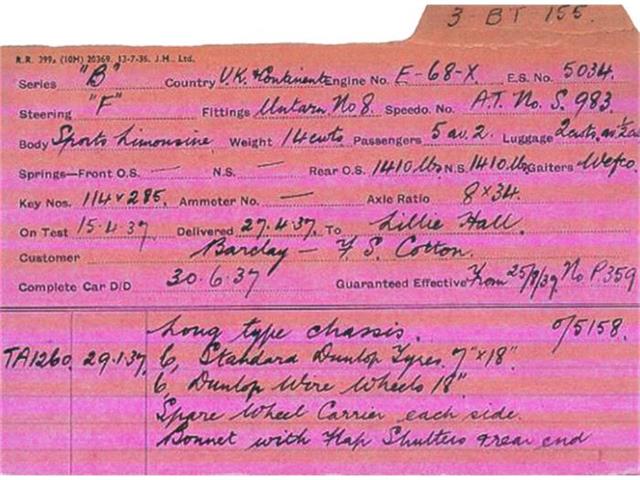 3 BT 155.
R.R. 399a (10M) 20369. 13-7-36. J.H., Ltd.
Series "B" Country U.K. & Continent Engine No. E-68-X. E.S. No. 5034.
Steering "F" Fittings No 8. Speedo. No. A.T. No. S. 983.
Body Sports Limousine Weight 14cwts Passengers 5 av. 2. Luggage 2cwts.
Springs—Front O.S. — N.S. — Rear O.S. 1410 lbs. N.S. 1410 lbs. Gaiters Wefco.
Key Nos. 114 & 285. Ammeter No. — Axle Ratio 8 x 34.
On Test 15.4.37 Delivered 27.4.37. To Lillie Hall.
Customer Barclay — F. S. Cotton.
Complete Car D/D 30.6.37 Guaranteed Effective From No P359
Long type chassis. 0/5158.
TA1260. 29.1.37. 6, Standard Dunlop Tyres. 7" x 18"
6, Dunlop Wire Wheels 18"
Spare Wheel Carrier each side.
Bonnet with Flap Shutters & rear end